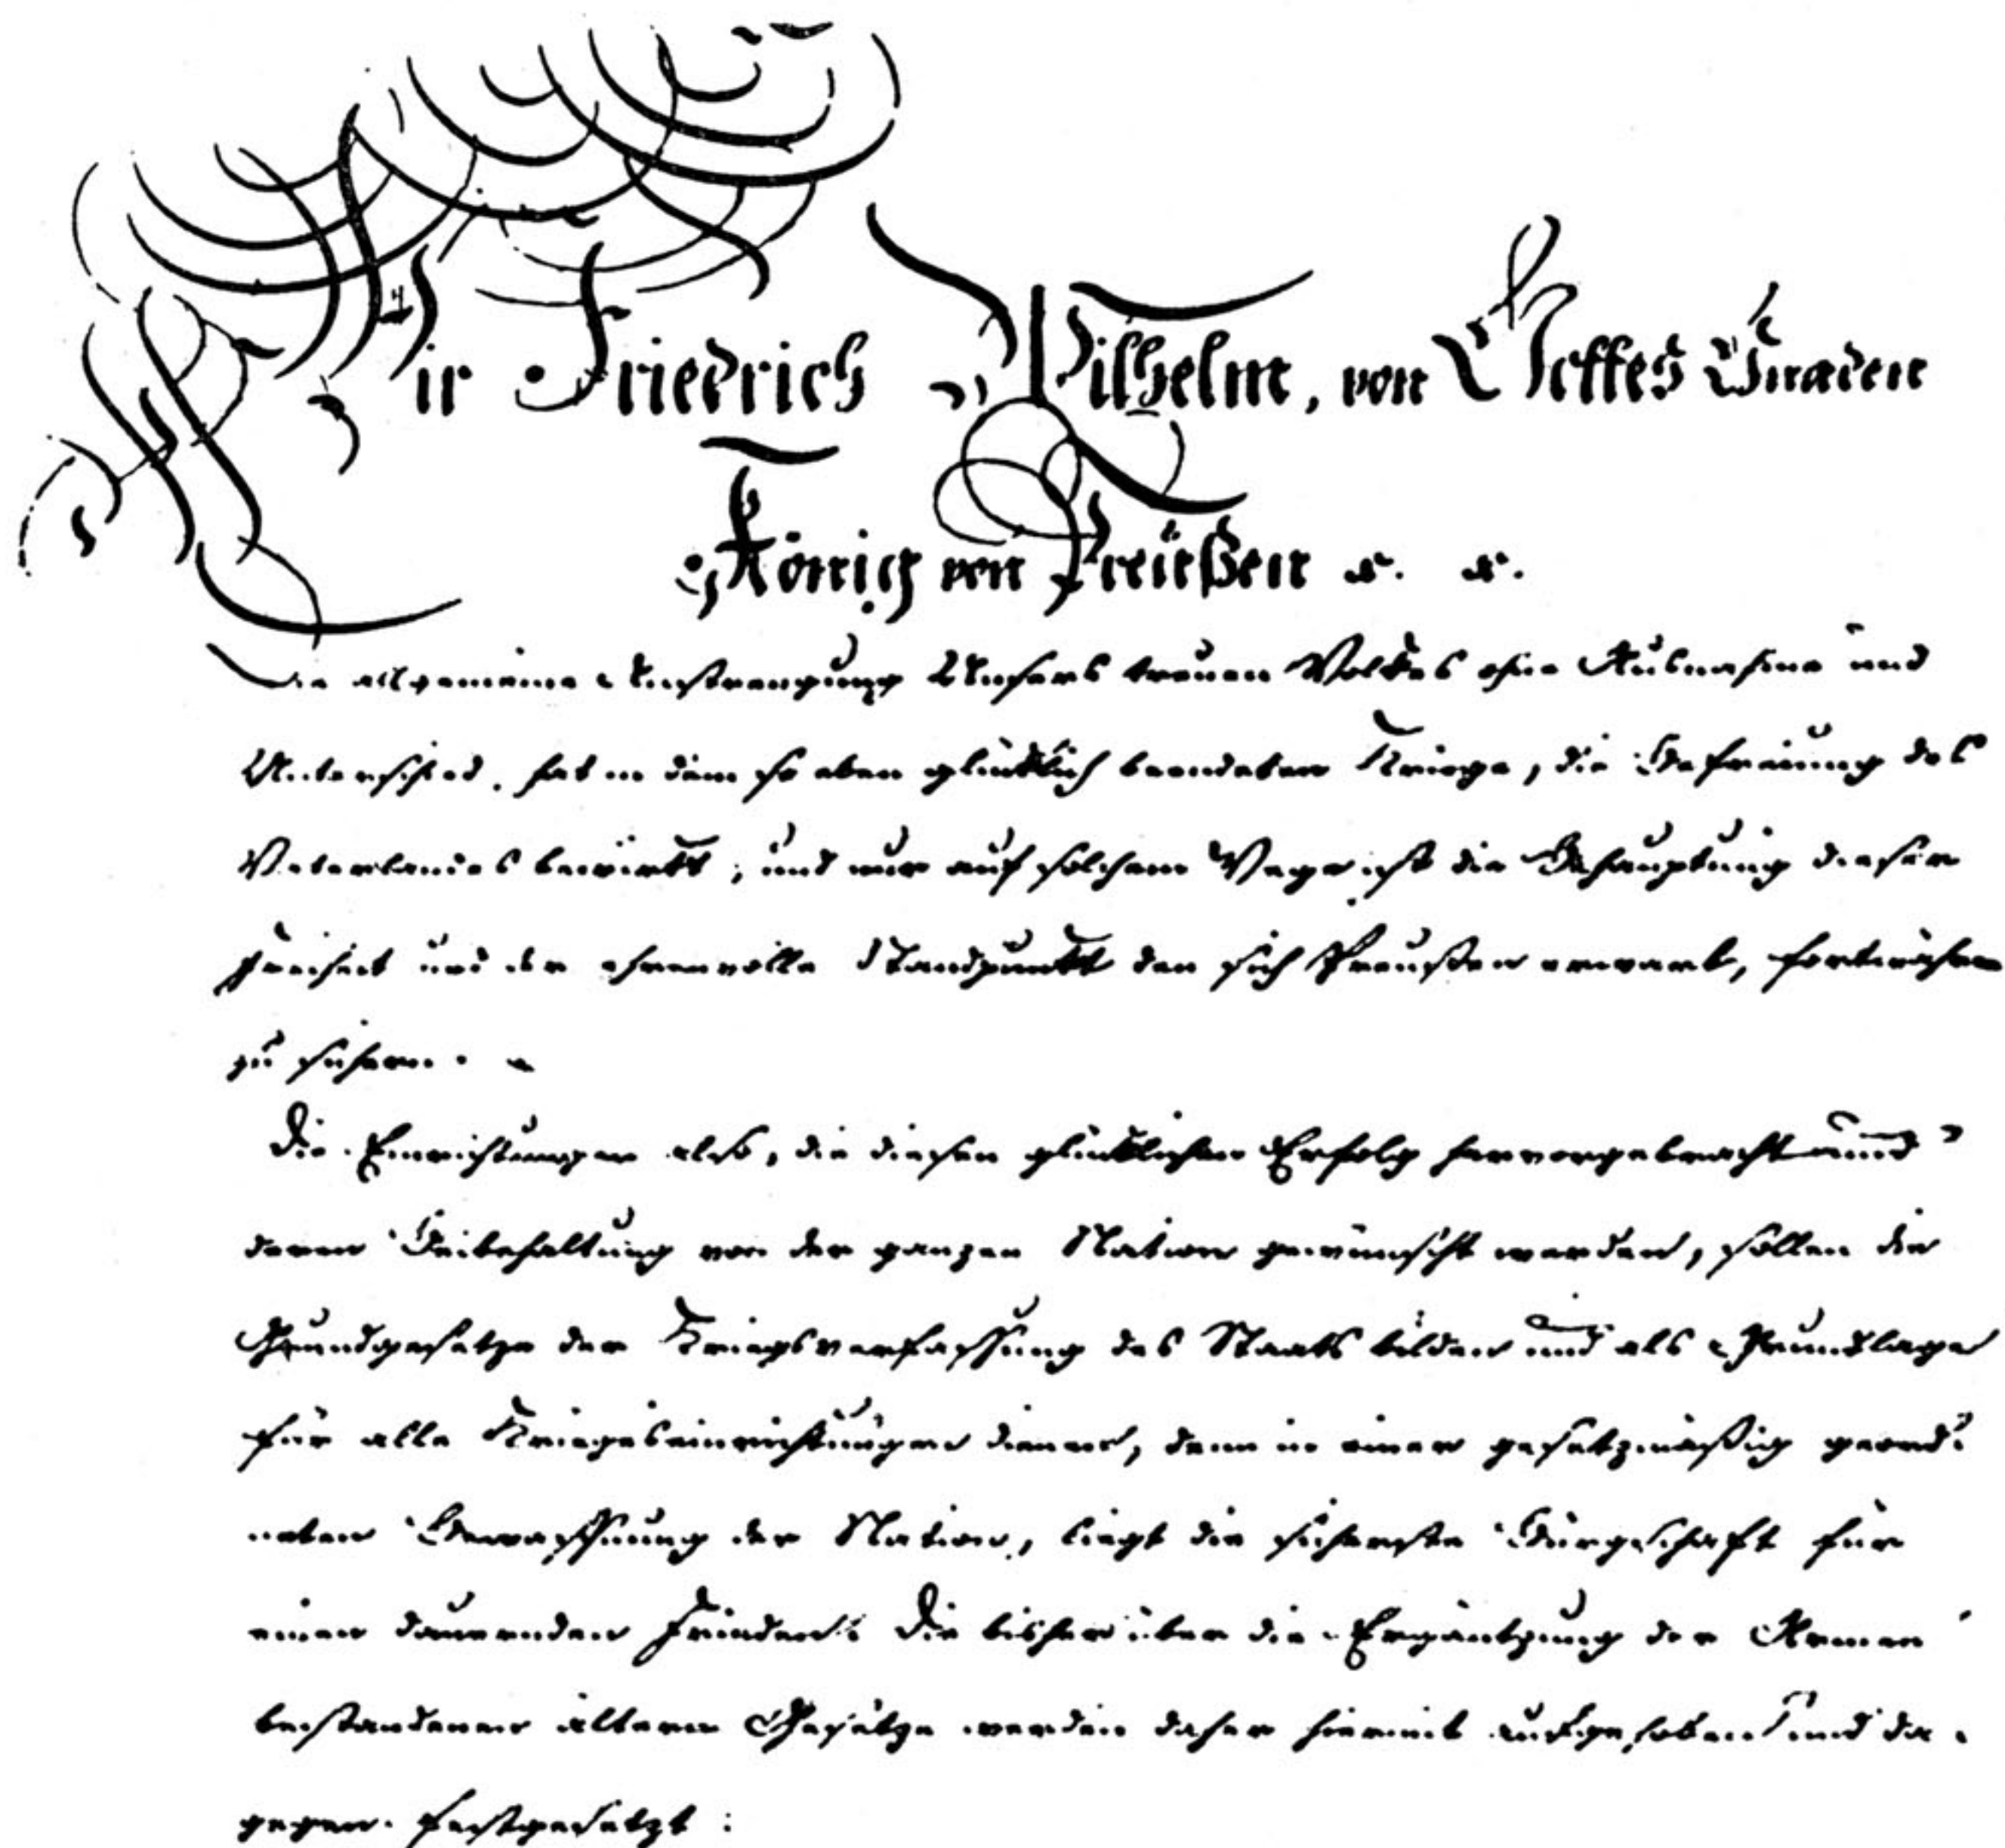 Wir Friedrich Wilhelm, von Gottes Gnaden
König von Preußen &. &.
Die allgemeine Anstrengung Unsers treuen Volkes ohne Ausnahme und
Unterschied, hat in dem so eben glücklich beendeten Kriege, die Befreiung des
Vaterlandes bewirkt; und nur auf solchem Wege ist die Behauptung dieser
Freiheit und der ehrenvolle Standpunkt den sich Preußen erwarb, fortwährend
zu sichern.
Die Einrichtungen also, die diesen glücklichen Erfolg hervorgebracht und
deren Beibehaltung von der ganzen Nation gewünscht werden, sollen die
Grundgesetze der Kriegsverfassung des Staats bilden und als Grundlage
für alle Kriegseinrichtungen dienen, denn in einer gesetzmäßig geord-
neten Bewaffnung der Nation, liegt die sicherste Bürgschaft für
einen dauernden Frieden. Die bisher über die Ergäntzung der Armee
bestandenen ältern Gesetze werden daher hiermit aufgehoben und da-
gegen festgesetzt: